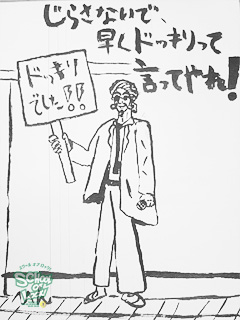 じらさないで、
早くドッキリって
言ってやれ!
ドッキリ
でした!!